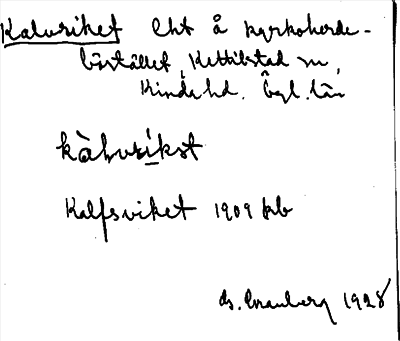 Kalvsviket Lht å kyrkoherde-
bostället, Kettilstad sn,
Kinda hd. Ögl. län
kàlvsikst
Kalfsviket 1909 jrb
G. Granberg 1928